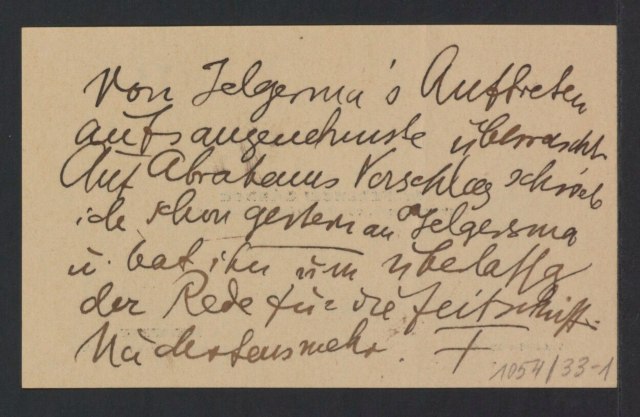 Von Jelgersma's Auftreten
aufs angenehmste überrascht
Auf Abrahams Vorschlag schrieb
ich schon gestern an Jelgersma
u. bat ihn um Überlassg
der Rede für die Zeitschrift.
Nächstens mehr. F
1054/33-1